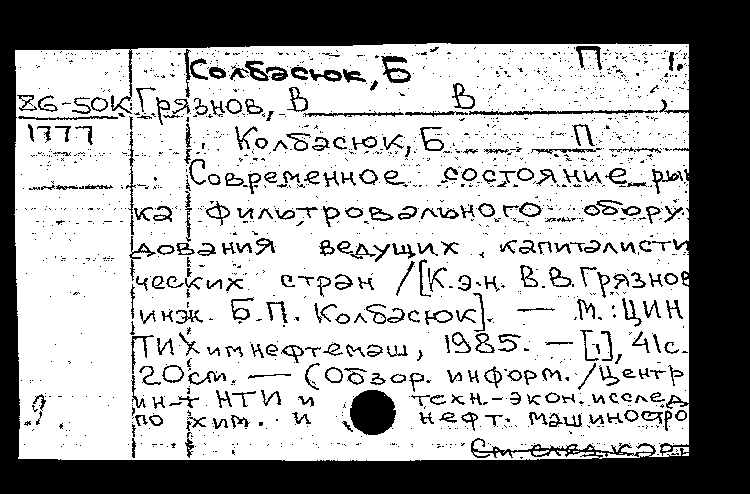 Колбасюк, Б П 1.
ZG-50K Грязнов, В В ,
1777 Колбасюк, Б П
Современное состояние рын
ка фильтровального обору
дования ведущих капиталисти
ческих стран /[К.э.н. В.В.Грязнов
инж. Б.П. Колбасюк]. — М.: ЦИН
ТИХимнефтемаш, 1985. — [1], 41с.
20см. — (Обзор. информ. /Центр
ин-т НТИ и техн.-экон. исслед
9. по хим. и нефт. машиностро
См. след. карт